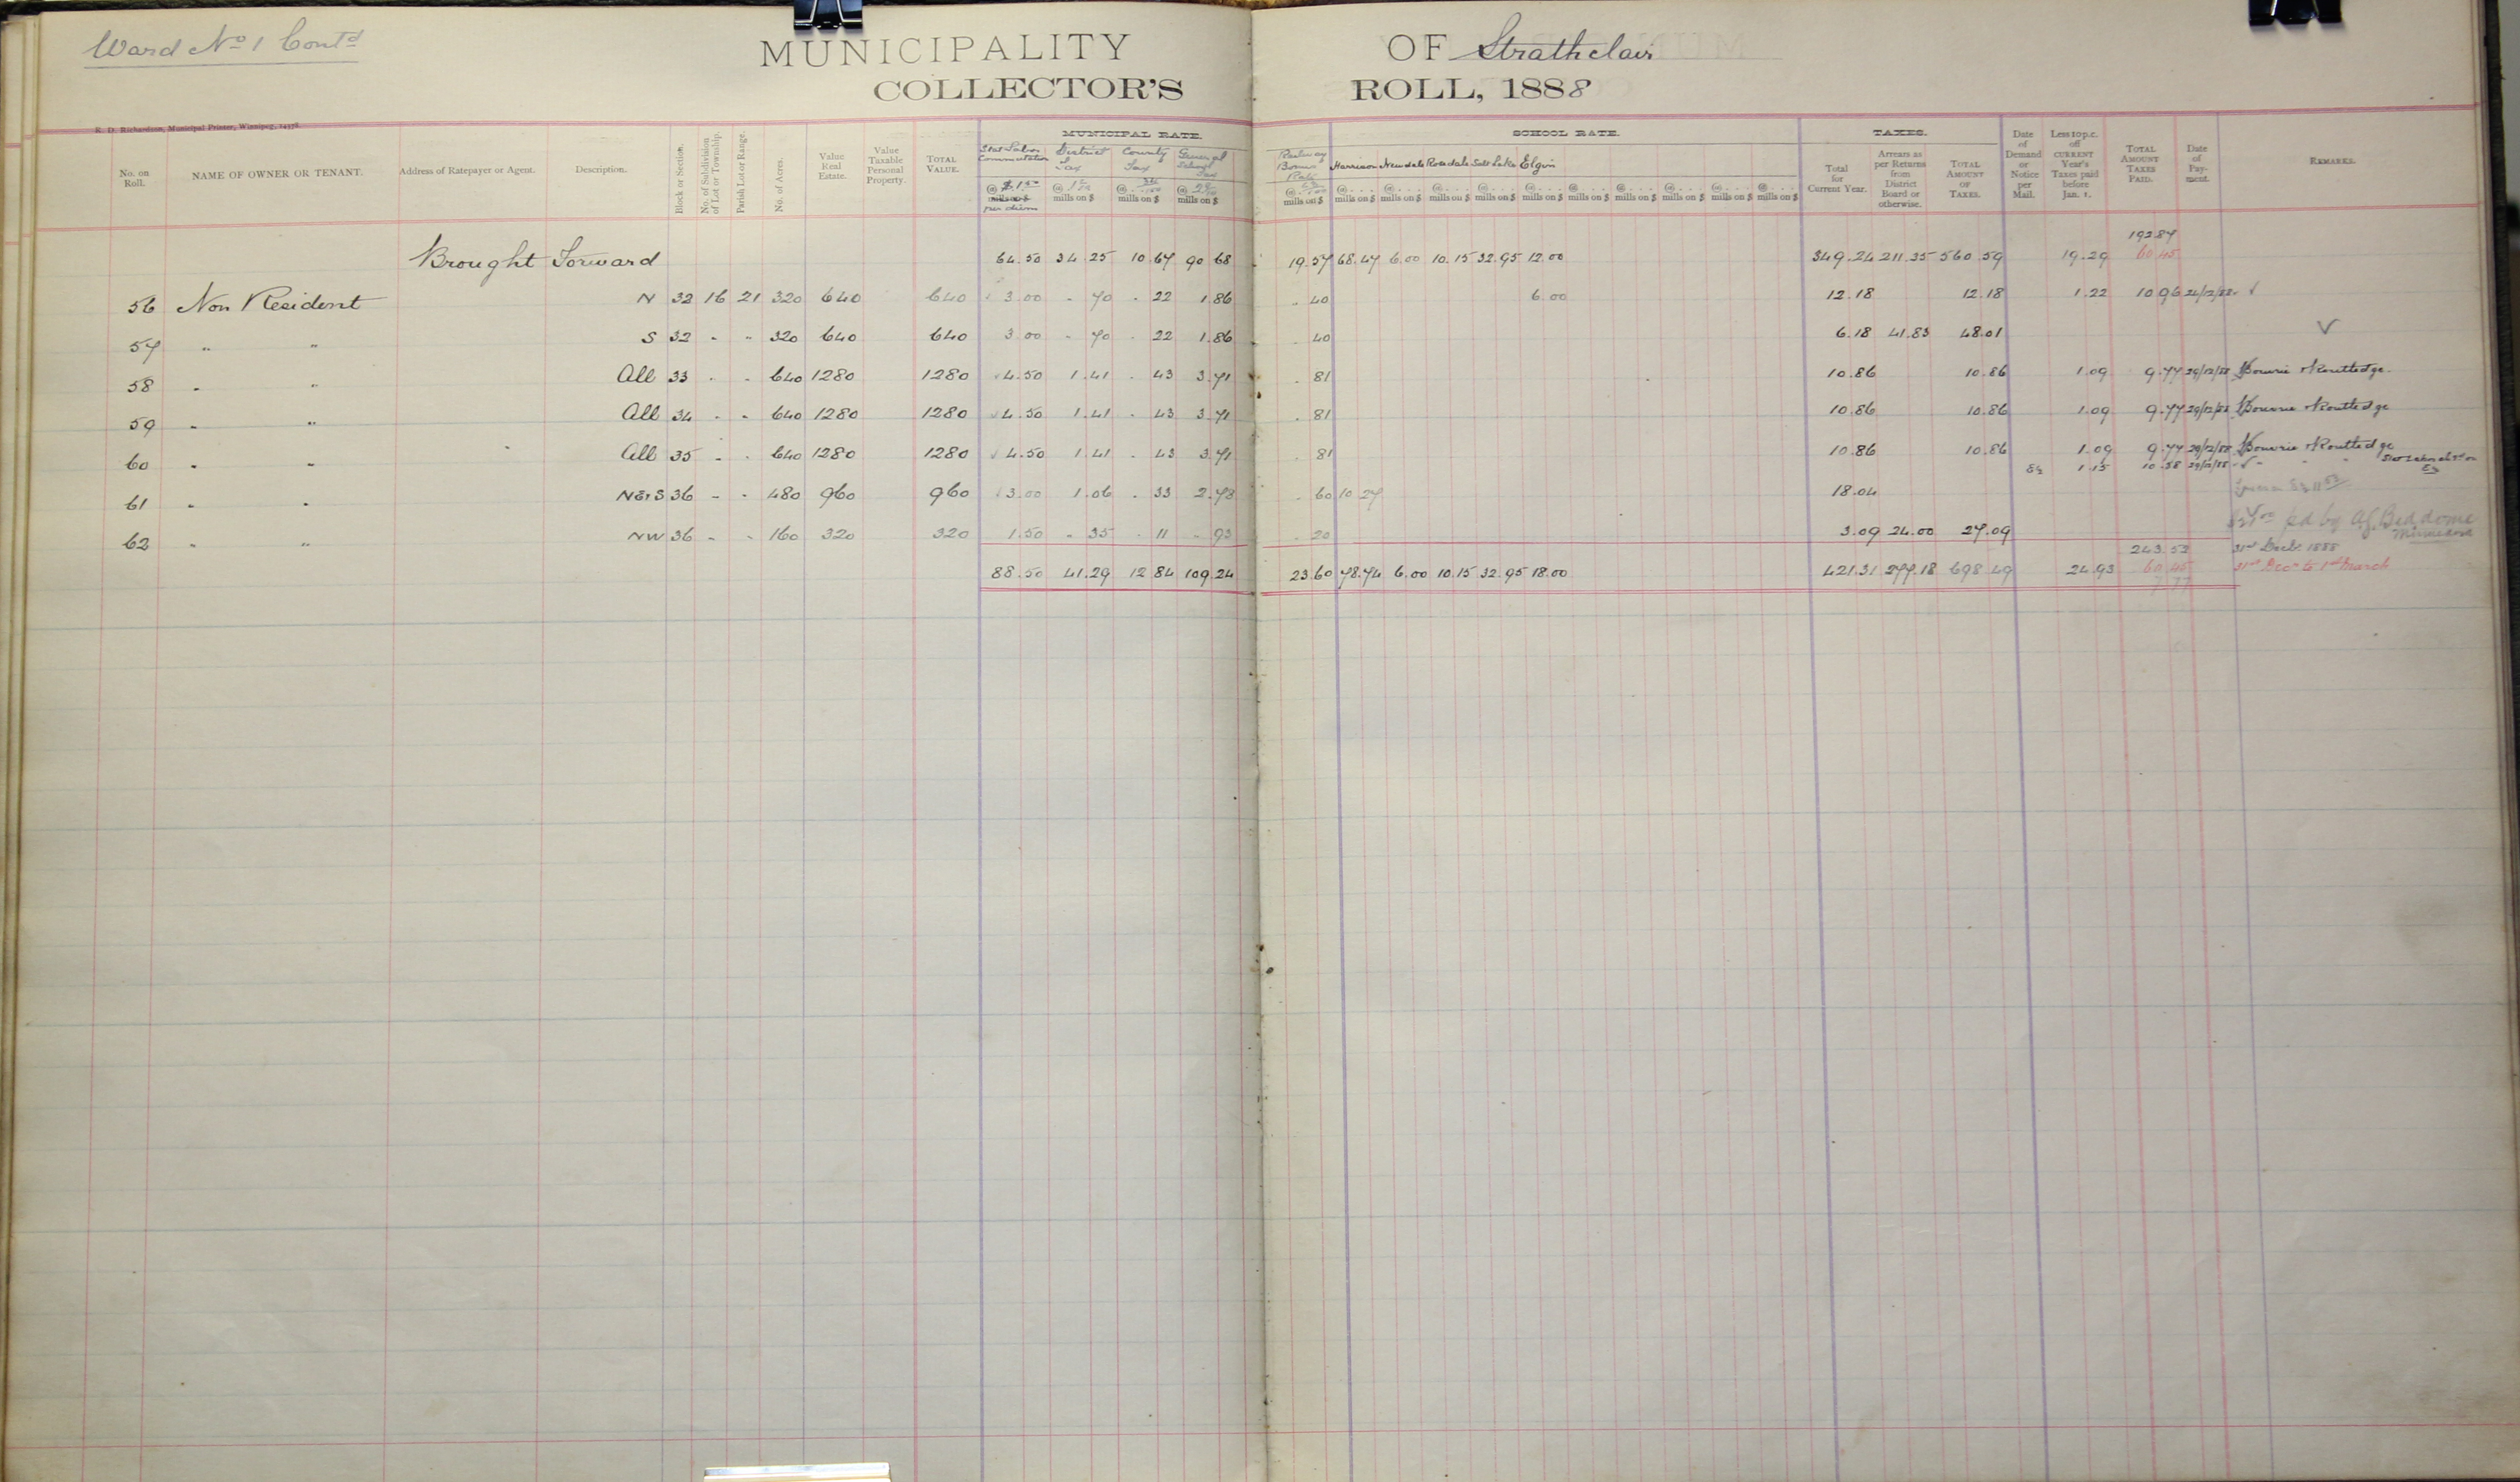 Ward No 1 Contd
MUNICIPALITY OF Strathclair
COLLECTOR'S ROLL, 1888
R. D. Richardson, Municipal Printer, Winnipeg, 14578.
MUNICIPAL RATE. SCHOOL RATE. TAXES.
No. on Roll. NAME OF OWNER OR TENANT. Address of Ratepayer or Agent. Description. Block or Section. No. of Subdivision of Lot or Township. Parish Lot or Range. No. of Acres. Value Real Estate. Value Taxable Personal Property. TOTAL VALUE. Stat Labor Commutation @ $1.50 mills on $ per diem District Tax @ mills on $ County Tax @ mills on $ General School Tax @ mills on $ Railway Bonus Rate @ mills on $ Harrison Newdale Rosedale Salt Lake Elgin @ mills on $ Total for Current Year. Arrears as per Returns from District Board or otherwise. TOTAL AMOUNT OF TAXES. Date of Demand or Notice per Mail. Less 10 p.c. off CURRENT Year's Taxes paid before Jan. 1. TOTAL AMOUNT TAXES PAID. Date of Payment. REMARKS.
192 87
Brought Forward 64.50 34 25 10 67 90 68 19.57 68.47 6.00 10.15 32.95 12.00 349.24 211.35 560 59 19.29 60 45
56 Non Resident N 32 16 21 320 640 640 3.00 - 70 - 22 1.86 . 40 6.00 12.18 12.18 1.22 10 96 24/12/88 √
57 " " S 32 - " 320 640 640 3 00 - 70 - 22 1.86 . 40 6.18 41.83 48.01 √
58 " " All 33 - - 640 1280 1280 4.50 1.41 - 43 3.71 . 81 10.86 10.86 1.09 9.77 29/12/88 Bowrie & Routledge
59 " " All 34 - - 640 1280 1280 4.50 1.41 - 43 3.71 . 81 10.86 10.86 1.09 9.77 29/12/88 Bowrie & Routledge
60 " " All 35 - - 640 1280 1280 4.50 1.41 - 43 3.71 . 81 10.86 10.86 1.09 9.77 29/12/88 Bowrie & Routledge
E½ 1.15 10.38 29/12/88 √ " "
61 " " NE & S 36 - - 480 960 960 3.00 1.06 . 33 2.78 . 60 10 27 18.04
62 " " NW 36 - - 160 320 320 1.50 - 35 - 11 - 93 . 20 3.09 24.00 27.09 pd by A.J. Beddome Minnedosa
243.52 31st Decbr 1888
88.50 41.29 12 84 109 24 23.60 78.74 6.00 10.15 32.95 18.00 421.31 277.18 698 49 24.93 60 45 31st Decr to 1st March
7 77